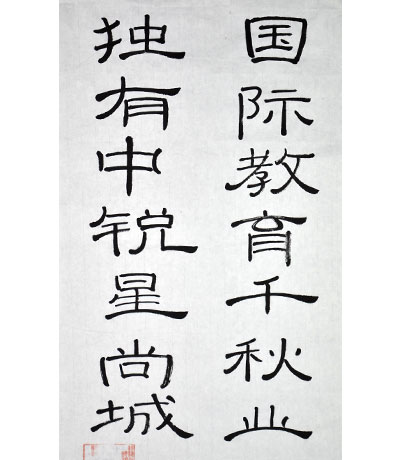 国际教育千秋业
独有中锐星尚城